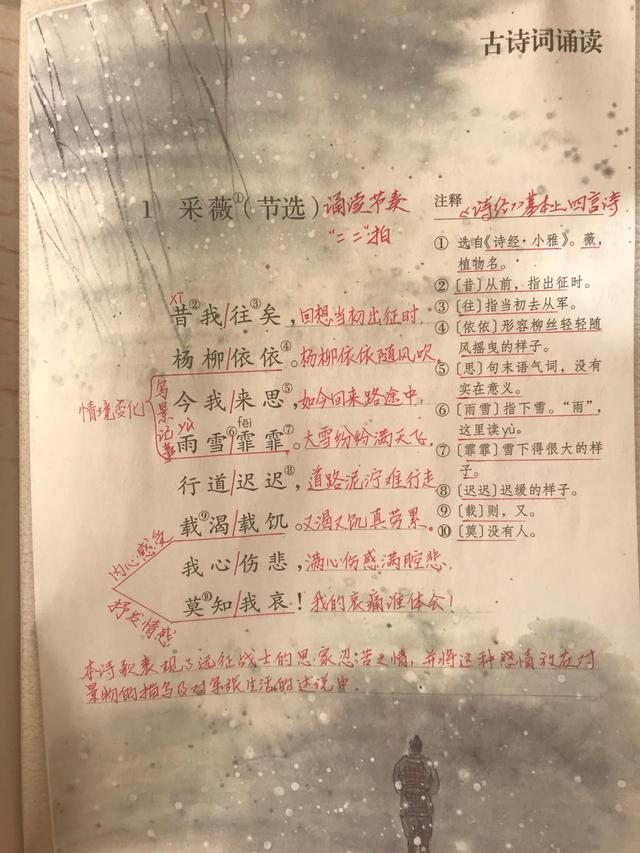 古诗词诵读
1 采薇①(节选) 诵读节奏
"二 二"拍
注释 《诗经》基本上四言诗
① 选自《诗经·小雅》。薇,
植物名。
②〔昔〕从前,指出征时。
③〔往〕指当初去从军。
④〔依依〕形容柳丝轻轻随
风摇曳的样子。
⑤〔思〕句末语气词,没有
实在意义。
⑥〔雨雪〕指下雪。“雨”,
这里读yù。
⑦〔霏霏〕雪下得很大的样
子。
⑧〔迟迟〕迟缓的样子。
⑨〔载〕则,又。
⑩〔莫〕没有人。
xī
昔②我/往③矣,回想当初出征时,
杨柳/依依④。杨柳依依随风吹。
情境变化
写景记事
今我/来思⑤,如今回来路途中,
yù
fēi
雨雪⑥/霏霏⑦。大雪纷纷满天飞。
行道/迟迟⑧,道路泥泞难行走
载⑨渴/载饥。又渴又饥真劳累。
内心感受
我心/伤悲,满心伤感满腔悲,
抒发情感
莫⑩知/我哀!我的哀痛谁体会!
本诗歌表现了远征战士的思家忍苦之情,并将这种感情放在对
景物的描写及对军旅生活的述说中.